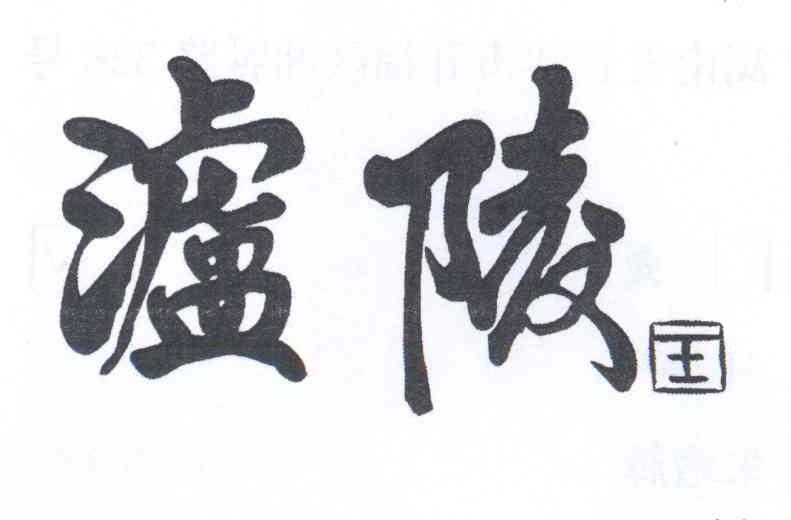 瀘陵
王